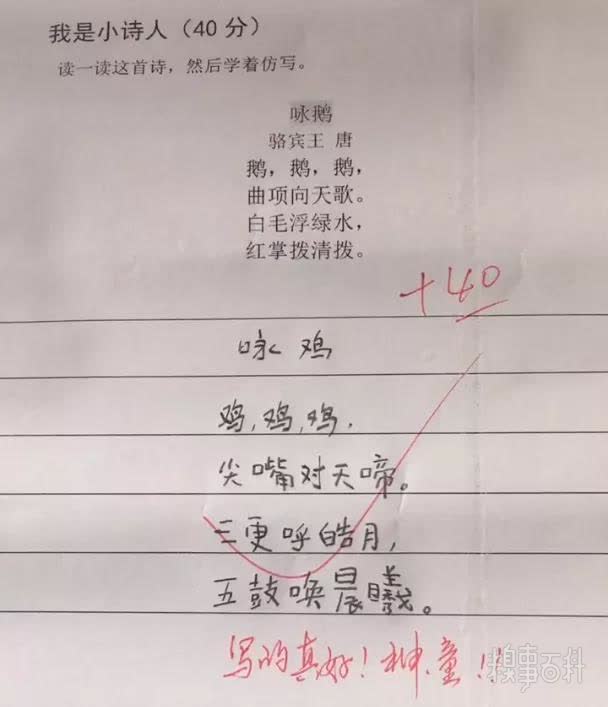 我是小诗人（40 分）
读一读这首诗，然后学着仿写。
咏鹅
骆宾王 唐
鹅，鹅，鹅，
曲项向天歌。
白毛浮绿水，
红掌拨清拨。
+40
咏鸡
鸡,鸡,鸡,
尖嘴对天啼。
三更呼皓月,
五鼓唤晨曦。
写的真好！神童！！
糗事百科